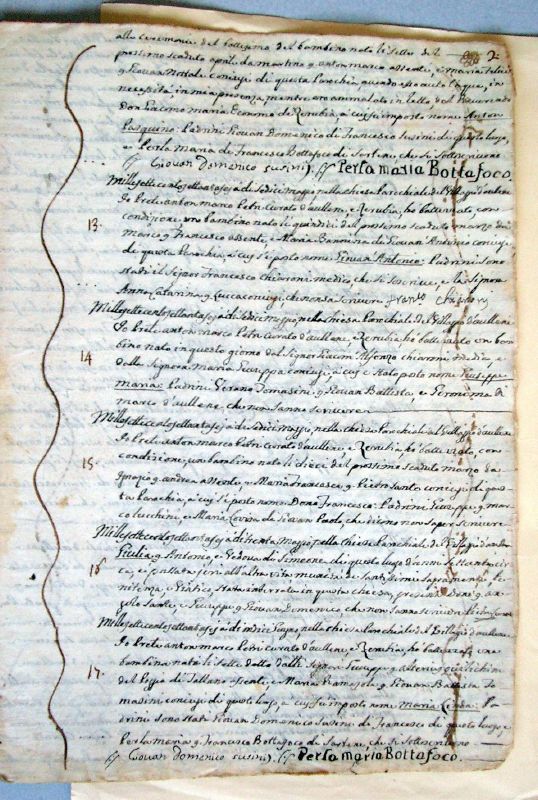 alle ceremonie del battesimo del bambino nato li sette del 2.
prossimo scaduto aprile da martino q. anton marco assente, e maria felice
q. Giovan Natale conjugi di questa Parochia, quando gli dato l'acqua, in
necessità in mia presenza, mentre ero ammalato in letto, dal Reverendo
Don Giacomo maria Economo di Zerubia, a cui si impose nome Anton
Pasquino: Padrini Giovan Domenico di Francesco Susini di questo luogo,
e Perla Maria di Francesco Bottafoco di Sartene che si sottoscrivono
Giovan domenico susini Perla maria Bottafoco.
Millesettecentosettantasej a di sedici maggio, nella chiesa Parochiale del Villagio d'aullene
Io prete anton marco Petri Curato d'aullene, e Zerubia, ho battezzato, con
13. condizione un bambino nato li quindici del prossimo scaduto marzo da
marco q. Francesco assente, e Maria di Giovan Antonio conjugi
di questa Parochia, a cui si è posto nome Giovan Antonio: Padrini sono
stati il Signor Francesco chiaroni medico che si scrive, e la Signora
Anna Catarina q. Luca conjugi, che non sa scrivere
Millesettecentosettantasej a di sedici maggio, nella chiesa Parochiale del Villagio d'aullene
Io prete anton marco Petri Curato d'aullene, e Zerubia, ho battezzato un bam
14 bino nato in questo giorno dal Signor Alfonzo chiaroni medico, e
dalla Signora Maria Giuseppa conjugi, a cui è stato posto nome Giuseppe
maria: Padrini Tomasini q. Giovan Battista, e Geronima di
marco d'aullene che non sanno scrivere
Millesettecentosettantasej a di sedici maggio, nella chiesa Parochiale del Villagio d'aullene
Io prete anton marco Petri Curato d'aullene, e Zerubia, ho battezzato, con
15. condizione, un bambino nato li dieci del prossimo scaduto marzo da
Ignazio q. andrea assente, e Maria Francesca q. Pietro Santo conjugi di ques
ta Parochia, a cui si è posto nome Don Francesco: Padrini Giuseppe q. mar
co lucchini, e Maria di Giovan Paolo, che dicono non saper scrivere
Millesettecentosettantasej a di trenta Maggio nella chiesa Parochiale del Villagio d'aullene
Giulia q. Antonio, e Vedova di Simeone, di questo luogo d'anni settanta cir
16 ca, è passata jeri all'altra vita munita de Santissimi Sacramenti, Pe
nitenza, e Viatico stata interrata in questa chiesa, presenti
Santo, e Giuseppe q. Giovan Domenico che non sanno scrivere
Millesettecentosettantasej a di Giugno, nella chiesa Parochiale del Villagio d'aullene
Io prete anton marco Petri Curato d'aullene, e Zerubia, ho battezzato una
17. bambina nata li sette detto dalli Signor Giuseppe q.
di Tallano assente, e Maria q. Giovan Battista To
masini conjugi di questo luogo, a cui si impose nome Maria: Pa
drini sono stati Giovan Domenico Susini di Francesco di questo luogo, e
Perla maria q. Francesco Bottafoco di Sartene che si sottoscrivono
Giovan domenico susini Perla maria Bottafoco.